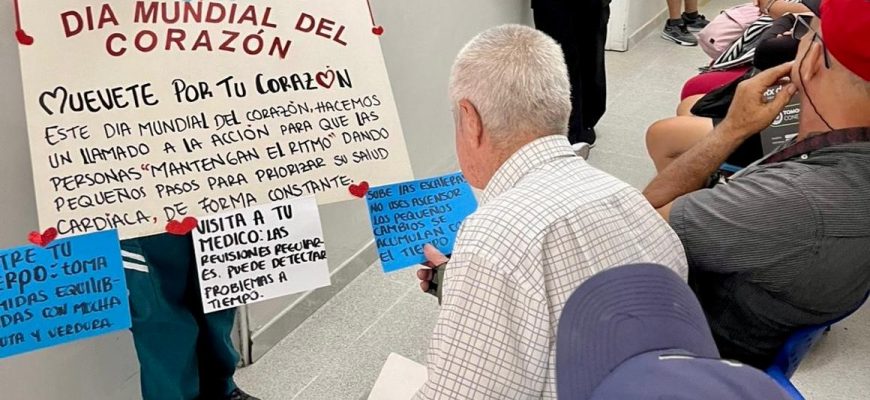 DIA MUNDIAL DEL
CORAZÓN
MUEVETE POR TU CORAZÓN
ESTE DIA MUNDIAL DEL CORAZÓN, HACEMOS
UN LLAMADO A LA ACCIÓN PARA QUE LAS
PERSONAS "MANTENGAN EL RITMO" DANDO
PEQUEÑOS PASOS PARA PRIORIZAR SU SALUD
CARDIACA, DE FORMA CONSTANTE.
TOMA
CON MUCHA
Y VERDURA
VISITA A TU
MEDICO: LAS
REVISIONES REGULAR-
ES, PUEDE DETECTAR
PROBLEMAS A
TIEMPO.
SUBE LAS
NO USES ASCENSOR
LOS PEQUEÑOS
CAMBIOS SE
ACUMULAN
EL TIEMPO